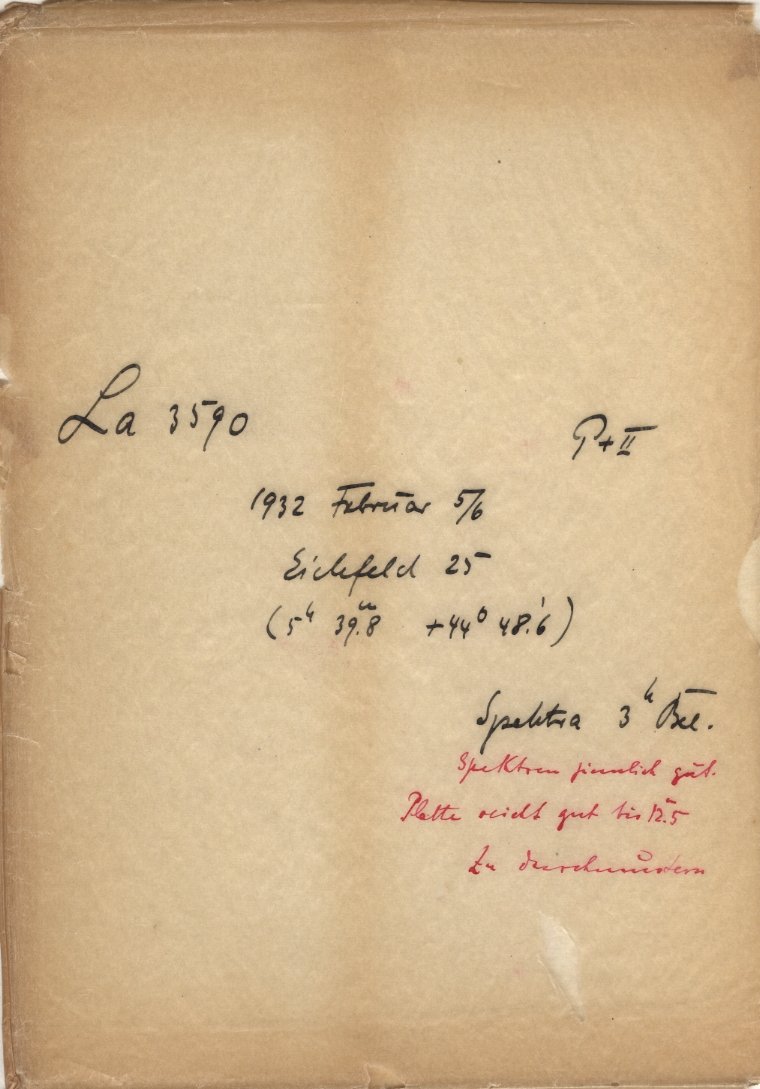 La 3590 P+II
1932 Februar 5/6
Eichfeld 25
(5ʰ 39ᵐ.8 +44° 48.'6)
Spektra 3ʰ Bel.
Spektren ziemlich gut.
Platte reicht gut bis 12ᵐ.5
Zu durchmustern